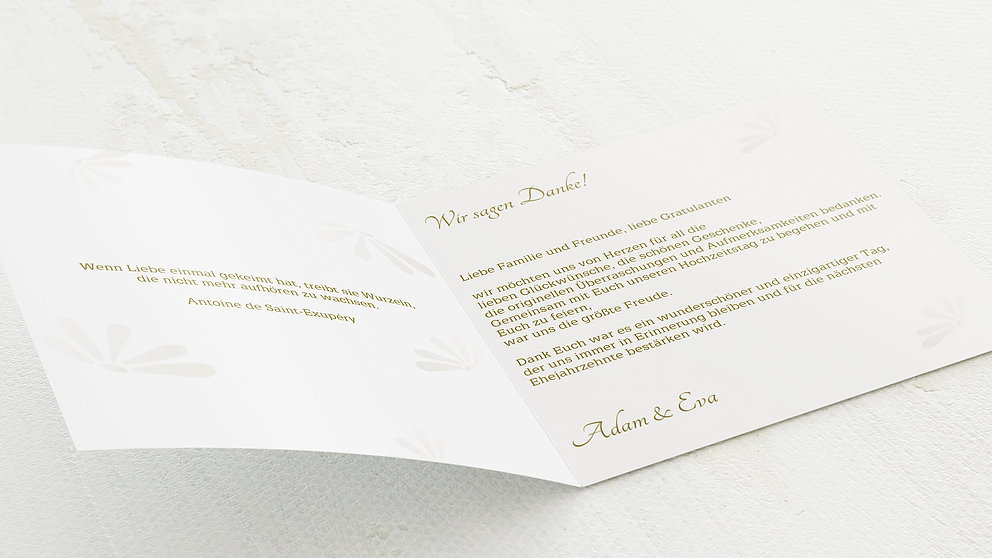 Wenn Liebe einmal gekeimt hat, treibt sie Wurzeln,
die nicht mehr aufhören zu wachsen.
Antoine de Saint-Exupéry
Wir sagen Danke!
Liebe Familie und Freunde, liebe Gratulanten
wir möchten uns von Herzen für all die
lieben Glückwünsche, die schönen Geschenke,
die originellen Überraschungen und Aufmerksamkeiten bedanken.
Gemeinsam mit Euch unseren Hochzeitstag zu begehen und mit
Euch zu feiern,
war uns die größte Freude.
Dank Euch war es ein wunderschöner und einzigartiger Tag,
der uns immer in Erinnerung bleiben und für die nächsten
Ehejahrzehnte bestärken wird.
Adam & Eva